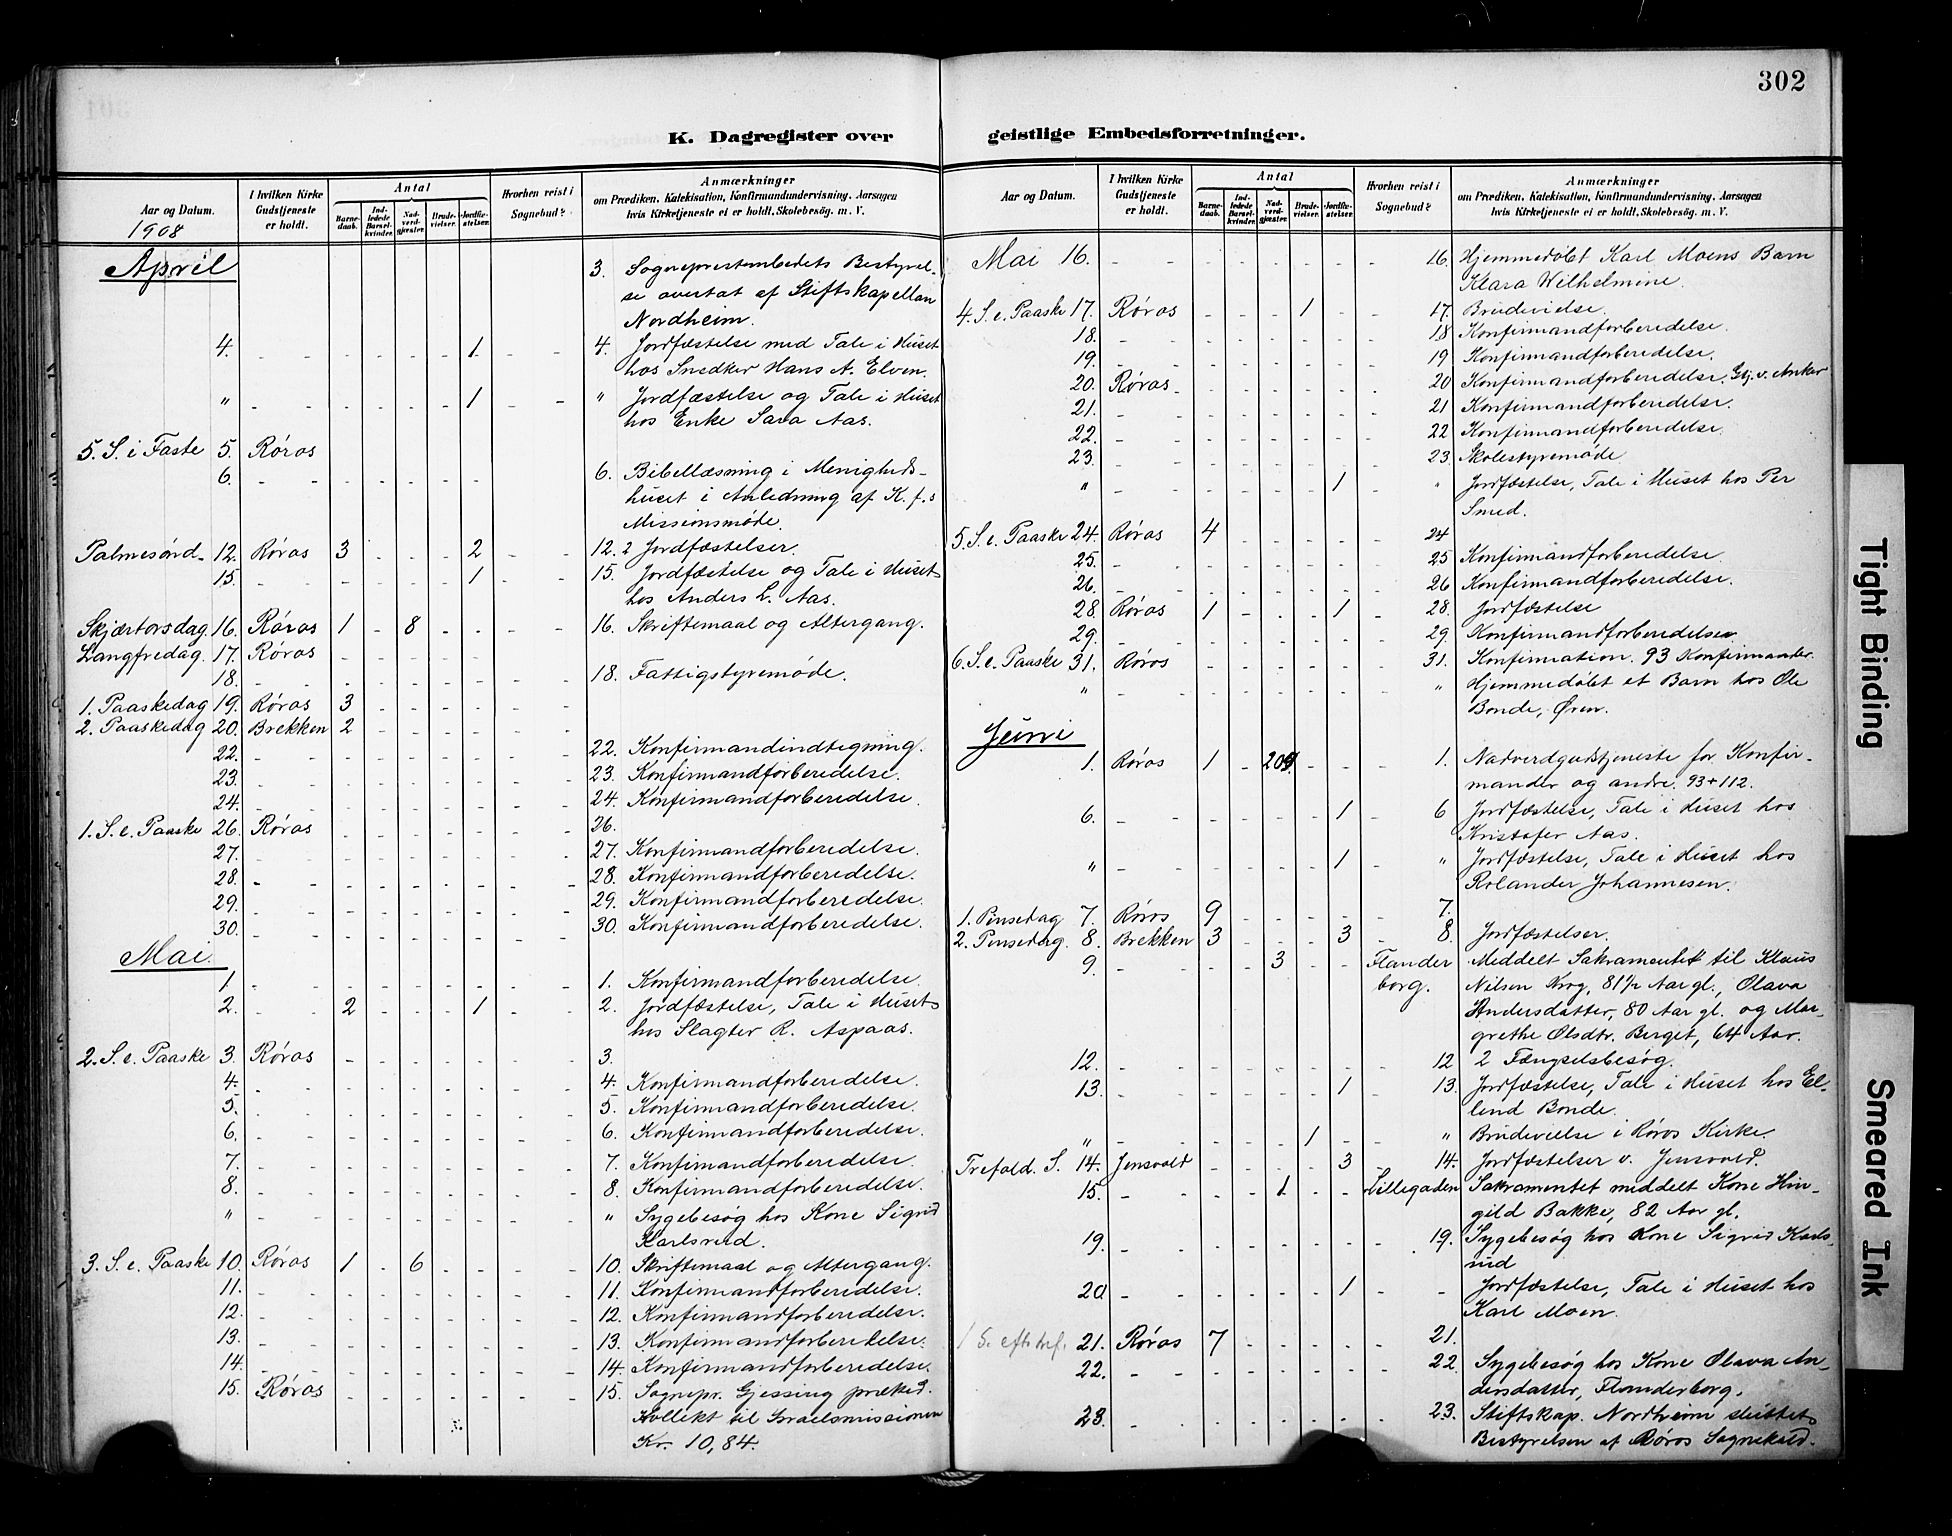 302
K. Dagregister over geistlige Embedsforretninger.
Aar og Datum. I hvilken Kirke Gudstjeneste er holdt. Antal Barnedaab. Indledede Barselkvinder. Nadverdgjæster. Brudevielser. Jordfæstelser. Hvorhen reist i Sognebud? Anmærkninger om Prædiken, Katekisation, Konfirmandundervisning, Aarsagen hvis Kirketjeneste ei er holdt, Skolebesøg. m. V.
1908
April
3. Sogneprestembedets Bestyrel-
se overtat af Stiftskapellan
Nordheim.
4. - - - - - - 1 - - 4. Jordfæstelse med Tale i Huset
hos Snedker Hans A. Elven.
" - - - - - - 1 - - " Jordfæstelse og Tale i Huset
hos Enke Sara Aas.
5. S. i Faste 5. Røros
6. - - 6. Bibellæsning i Menigheds-
huset i Anledning af K. f. s
Missionsmøde.
Palmesønd. 12. Røros 3 - - - 2 - - 12. 2 Jordfæstelser.
15. - - - - - - 1 - - 15. Jordfæstelse og Tale i Huset
hos Anders L. Aas.
Skjærtorsdag 16. Røros 1 - 8 - - - - 16. Skriftemaal og Altergang.
Langfredag. 17. Røros - - - - - - -
18. - - - - - - - - - 18. Fattigstyremøde.
1. Paaskedag 19. Røros 3 - - - - - -
2. Paaskedag 20. Brekken 2 - - - - - -
22. - - - - - - - - - 22. Konfirmandindtegning.
23. - - - - - - - - - 23. Konfirmandforberedelse.
24. - - - - - - - - - 24. Konfirmandforberedelse.
1. S. e. Paaske 26. Røros - - - - - - - 26.
27. - - - - - - - - - 27. Konfirmandforberedelse.
28. - - - - - - - - - 28. Konfirmandforberedelse.
29. - - - - - - - - - 29. Konfirmandforberedelse.
30. - - - - - - - - - 30. Konfirmandforberedelse.
Mai.
1. - - - - - - - - - 1. Konfirmandforberedelse.
2. - - 2 - - - 1 - - 2. Jordfæstelse, Tale i Huset
hos Slagter R. Aspaas.
2. S. e. Paaske 3. Røros - - - - - - - 3.
4. - - - - - - - - - 4. Konfirmandforberedelse.
5. - - - - - - - - - 5. Konfirmandforberedelse.
6. - - - - - - - - - 6. Konfirmandforberedelse.
7. - - - - - - - - - 7. Konfirmandforberedelse.
8. - - - - - - - - - 8. Konfirmandforberedelse.
" - - - - - - - - - " Sygebesøg hos Kone Sigrid
Karlsrud.
3. S. e. Paaske 10. Røros 1 - 6 - - - - 10. Skriftemaal og Altergang.
11. - - - - - - - - - 11. Konfirmandforberedelse.
12. - - - - - - - - - 12. Konfirmandforberedelse.
13. - - - - - - - - - 13. Konfirmandforberedelse.
14. - - - - - - - - - 14. Konfirmandforberedelse.
15. Røros - - - - - - - 15. Sognepr. Gjessing præked.
Kollekt til Israelsmissionen
Kr. 10,84.
Aar og Datum. I hvilken Kirke Gudstjeneste er holdt. Antal Barnedaab. Indledede Barselkvinder. Nadverdgjæster. Brudevielser. Jordfæstelser. Hvorhen reist i Sognebud? Anmærkninger om Prædiken, Katekisation, Konfirmandundervisning, Aarsagen hvis Kirketjeneste ei er holdt, Skolebesøg. m. V.
Mai 16. - - - - - - - - 16. Hjemmedøbt Karl Moens Barn
Klara Wilhelmine.
4. S. e. Paaske 17. Røros - - - 1 - - 17. Brudevielse.
18. - - - - - - - - 18 Konfirmandforberedelse.
19. - - - - - - - - 19 Konfirmandforberedelse.
20. Røros - - - - - - 20 Konfirmandforberedelse. Gtj. v. Anker
21. - - - - - - - - 21 Konfirmandforberedelse.
22. - - - - - - - - 22 Konfirmandforberedelse.
23. - - - - - - - - 23. Skolestyremøde
" - - - - - - 1 - " Jordfæstelse, Tale i Huset hos Per
Smed.
5. S. e. Paaske 24. Røros 4 - - - - - 24
25. - - - - - - - - 25 Konfirmandforberedelse.
26. - - - - - - - - 26 Konfirmandforberedelse.
28. Røros 1 - - - 1 - 28. Jordfæstelse
29. - - - - - - - - 29. Konfirmandforberedelse.
6. S. e. Paaske 31. Røros - - - - - - 31. Konfirmation. 93 Konfirmander.
" - - - - - - - - " Hjemmedøbt et Barn hos Ole
Bonde, Øren.
Juni
1. Røros 1 - 205 - - - 1. Nadverdgudstjeneste for Konfir-
mander og andre. 93+112.
6. - - - - - - 1 - 6 Jordfæstelse, Tale i Huset hos
Kristofer Aas.
" - - - - - - 1 - " Jordfæstelse, Tale i Huset hos
Rolander Johannesen.
1. Pinsedag 7. Røros 9 - - - - - 7.
2. Pinsedag. 8. Brekken 3 - - - 3 - 8. Jordfæstelser.
9. - - - - 3 - - Flander Meddelt Sakramentet til Klaus
borg. Nilsen Krog, 81½ Aar gl., Olava
Andersdatter, 80 Aar gl. og Mar-
grethe Olsdtr. Berget, 64 Aar.
12. - - - - - - - - 12 2 Fængselsbesøg.
13. - - - - - - 1 - 13. Jordfæstelse, Tale i Huset hos El-
lend Bonde.
" - - - - - 1 - - " Brudevielse i Røros Kirke.
Trefold. S. 14. Jensvold - - - - 3 - 14. Jordfæstelser v. Jensvold.
15. - - - - 1 - - Lillegaden Sakramentet middelt Kone Hin-
gild Bakke, 82 Aar gl.
19. - - - - - - - - 19. Sygebesøg hos Kone Sigrid Karls-
rud
20 - - - - - - 1 - - Jordfæstelse, Tale i Huset hos
Karl Moen.
1 S. eft. tref. 21. Røros 7 - - - - - 21.
22. - - - - - - - - 22. Sygebesøg hos Kone Olava An-
dersdatter, Flanderborg.
23. - - - - - - - - 23. Stiftskap. Nordheim sluttet
Bestyrelsen af Røros Sognekald.
Tight Binding
Smeared Ink